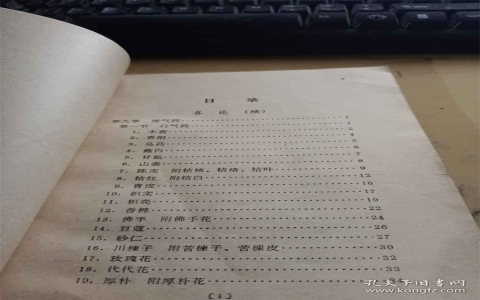 目 录
各 论 （续）
第九章 理气药 1
第一节 行气药 2
1. 木香 2
2. 香附 4
3. 乌药
4. 薤白 6
5. 甘松 7
6. 山柰 8
7. 陈皮 附桔核、桔络、桔叶 9
8. 桔红 附桔白 12
9. 青皮 14
10. 枳实 17
11. 枳壳 19
12. 香橼 22
13. 佛手 附佛手花 24
14. 豆蔻 26
15. 砂仁 27
16. 川楝子 附苦楝子、苦楝皮 30
17. 玫瑰花 32
18. 代代花 33
19. 厚朴 附厚朴花
[1]
孔夫子旧书网
www.kongfz.com